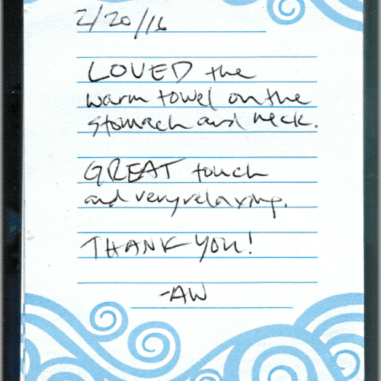 2/20/16
LOVED the
warm towel on the
stomach and neck.
GREAT touch
and very relaxing.
THANK YOU!
-AW